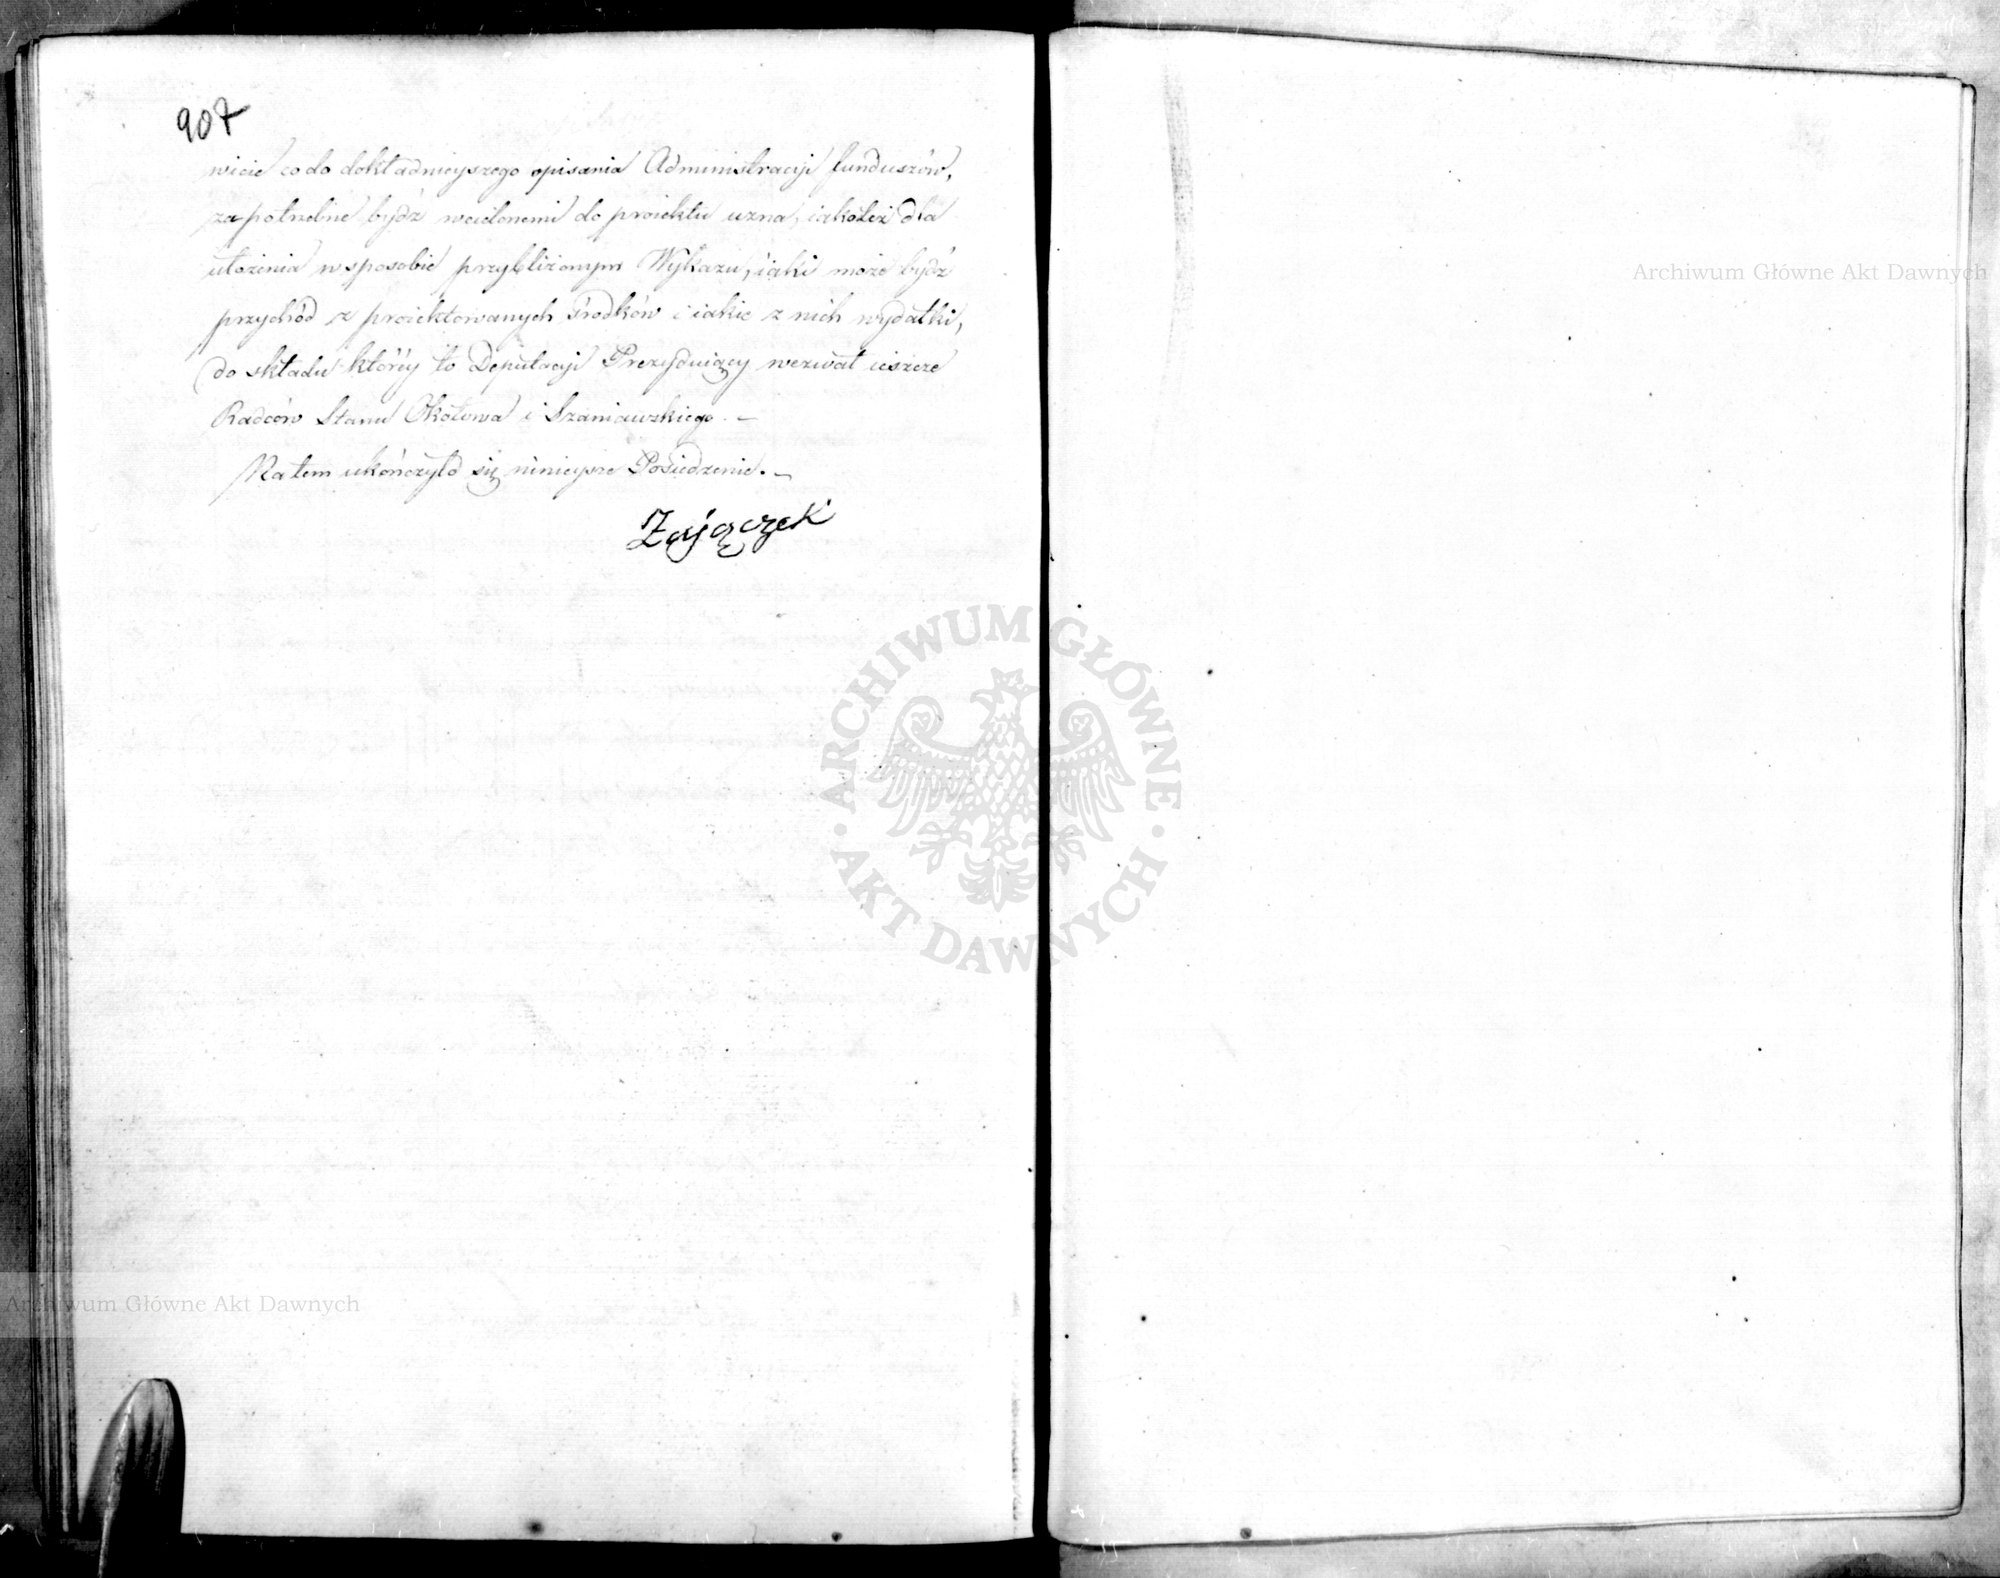 907
wicie co do dokładnieyszego opisania Administracyi funduszów,
za potrzebne bydź wcielonemi do proiektu uzna, iakoteż dla
ułożenia w sposobie przybliżonym Wykazu, iaki może bydź
przychód z proiektowanych środków i iakie z nich wydatki,
do składu któréy to Deputacyi Prezyduiący wezwał ieszcze
Radców Stanu Okołowa i Szaniawskiego. —
Na tem ukończyło się ninieysze Posiedzenie. —
Zajączek
Archiwum Główne Akt Dawnych
ARCHIWUM GŁÓWNE
AKT DAWNYCH
Archiwum Główne Akt Dawnych